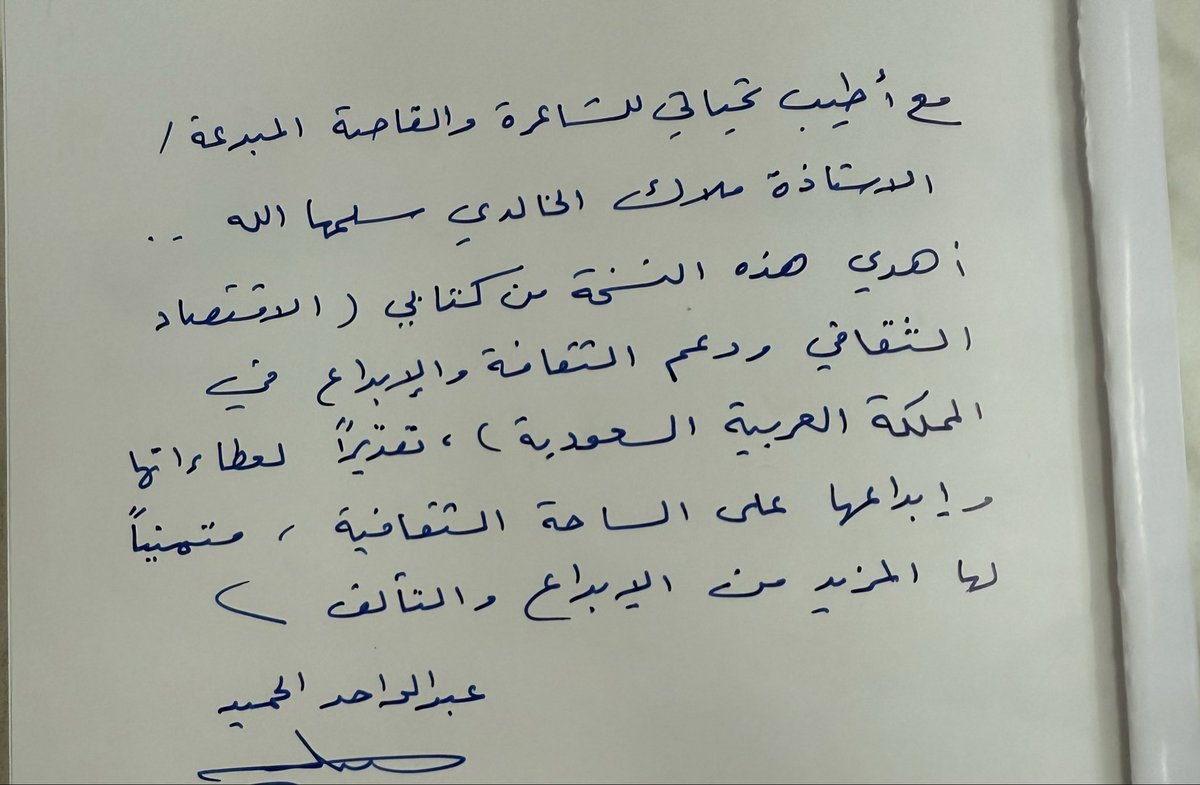 مع أطيب تحياتي للشاعرة والقاصة المبدعة /
الاستاذة ملاك الخالدي سلمها الله ..
أهدي هذه النسخة من كتابي ( الاقتصاد
الثقافي ودعم الثقافة والإبداع في
المملكة العربية السعودية ) ، تقديراً لعطاءاتها
وإبداعها على الساحة الثقافية ، متمنياً
لها المزيد من الإبداع والتألق
عبدالواحد الحميد